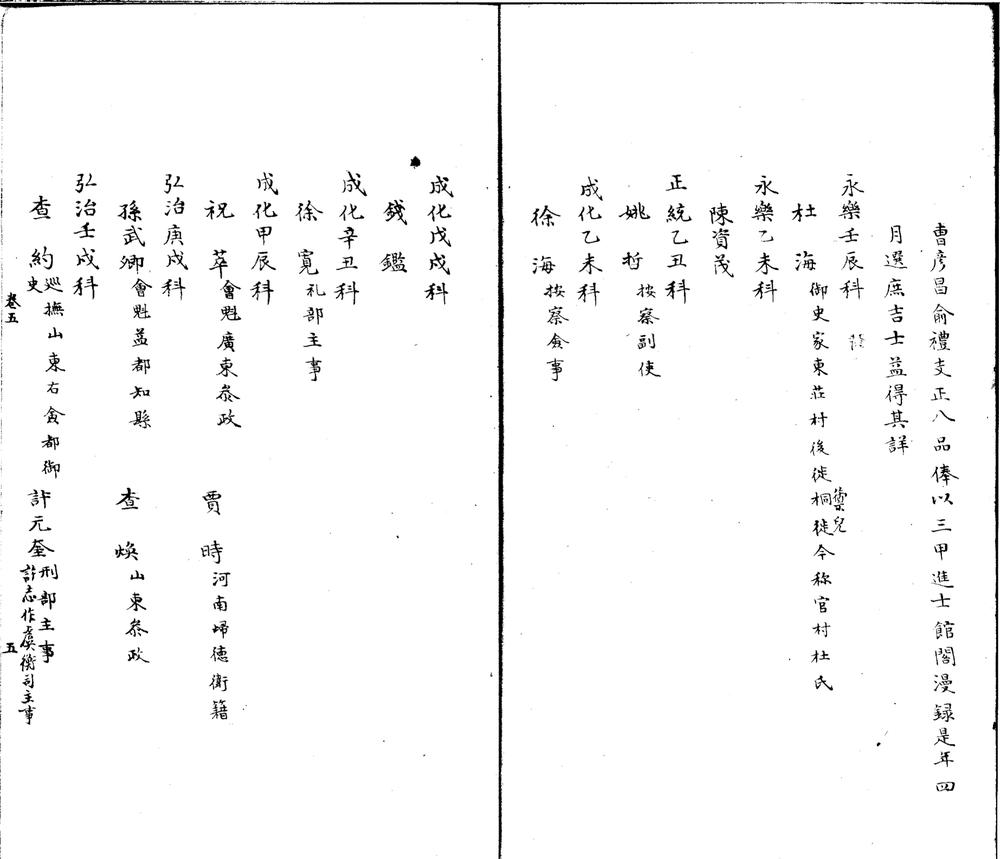 曹彦昌俞禮支正八品俸以三甲進士館閣漫録是年四
月選庶吉士益得其詳
永樂壬辰科
杜 海 御史家東莊村後徙桐徙今称官村杜氏
永樂乙未科
陳資茂
正統乙丑科
姚 哲 按察副使
成化乙未科
徐 海 按察僉事
成化戊戌科
錢 鑑
成化辛丑科
徐 寛 礼部主事
成化甲辰科
祝 萃 會魁廣東叅政 賈 時 河南歸德衛籍
弘治庚戌科
孫武卿 會魁益都知縣 查 煥 山東叅政
弘治壬戌科
查 約 巡撫山東右僉都御史 許元奎 刑部主事 許志作虞衡司主事
卷五 五